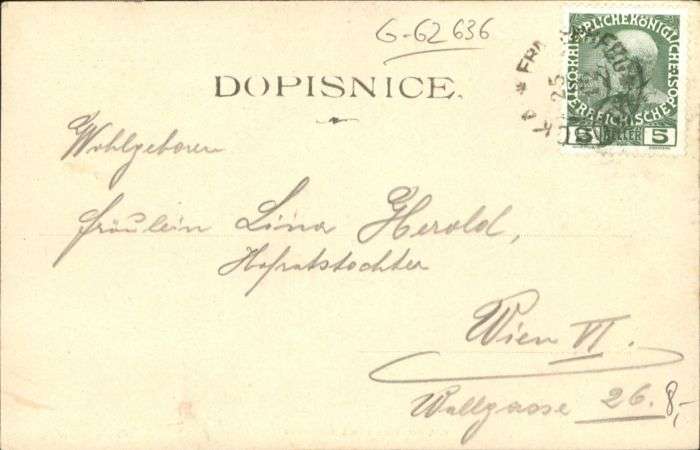 G-62 636
DOPISNICE.
KAIS. KÖNIGLICHE ÖSTERREICHISCHE POST
5 HELLER 5
25
Wohlgeboren
Fräulein Lina Herold,
Hofratstochter
Wien VI.
Wallgasse 26.
8,-